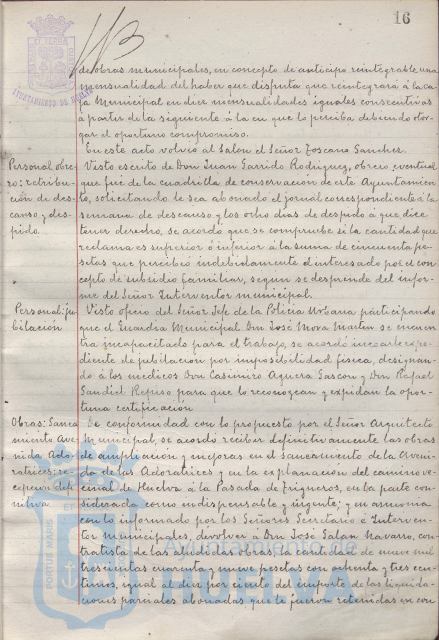 16
de obras municipales, en concepto de anticipo reintegrable una
mensualidad del haber que disfruta que reintegrará á la ca-
ja Municipal en diez mensualidades iguales consecutivas
á partir de la siguiente á la en que lo perciba debiendo otor-
gar el oportuno compromiso.
En este acto volvió al Salón el Señor Toscano Sanchez.
Personal obre-
ro: retribu-
ción de des-
canso y des-
pido.
Visto escrito de Don Juan Garrido Rodriguez, obrero eventual
que fué de la cuadrilla de conservación de este Ayuntamien-
to, solicitando le sea abonado el jornal correspondiente á la
semana de descanso y los ocho dias de despido á que dice
tener derecho, se acordó que se compruebe si la cantidad que
reclama es superior ó inferior á la suma de cincuenta pe-
setas que percibió indebidamente el interesado por el con-
cepto de subsidio familiar, segun se desprende del infor-
me del Señor Interventor municipal.
Personal: ju-
bilación
Visto oficio del Señor Jefe de la Policia Urbana participando
que el Guardia Municipal Don José Mora Martin se encuen-
tra incapacitado para el trabajo, se acordó incoar expe-
diente de jubilación por imposibilidad fisica, designan-
do á los medicos Don Casimiro Aguera Gascon y Don Rafael
para que lo reconozcan y expidan la opor-
tuna certificación
Obras: Sanea-
miento Ave-
nida Ado-
ratrices: re-
cepcion defi-
nitiva
De conformidad con lo propuesto por el Señor Arquitecto
Municipal, se acordó recibir definitivamente las obras
de ampliación y mejoras en el Saneamiento de la Aveni-
da de las Adoratrices y en la explanación del camino ve-
cinal de Huelva á la Pasada de Trigueros, en la parte con-
siderada como indispensable y urgente; y en armonia
con lo informado por los Señores Secretario é Interven-
tor municipales, devolver á Don José Galan Navarro, con-
tratista de las aludidas obras, la cantidad de nueve mil
trescientas cuarenta y nueve pesetas con ochenta y tres cen-
timos, igual al diez por ciento del importe de las liquida-
ciones parciales abonadas que le fueron retenidas en con-